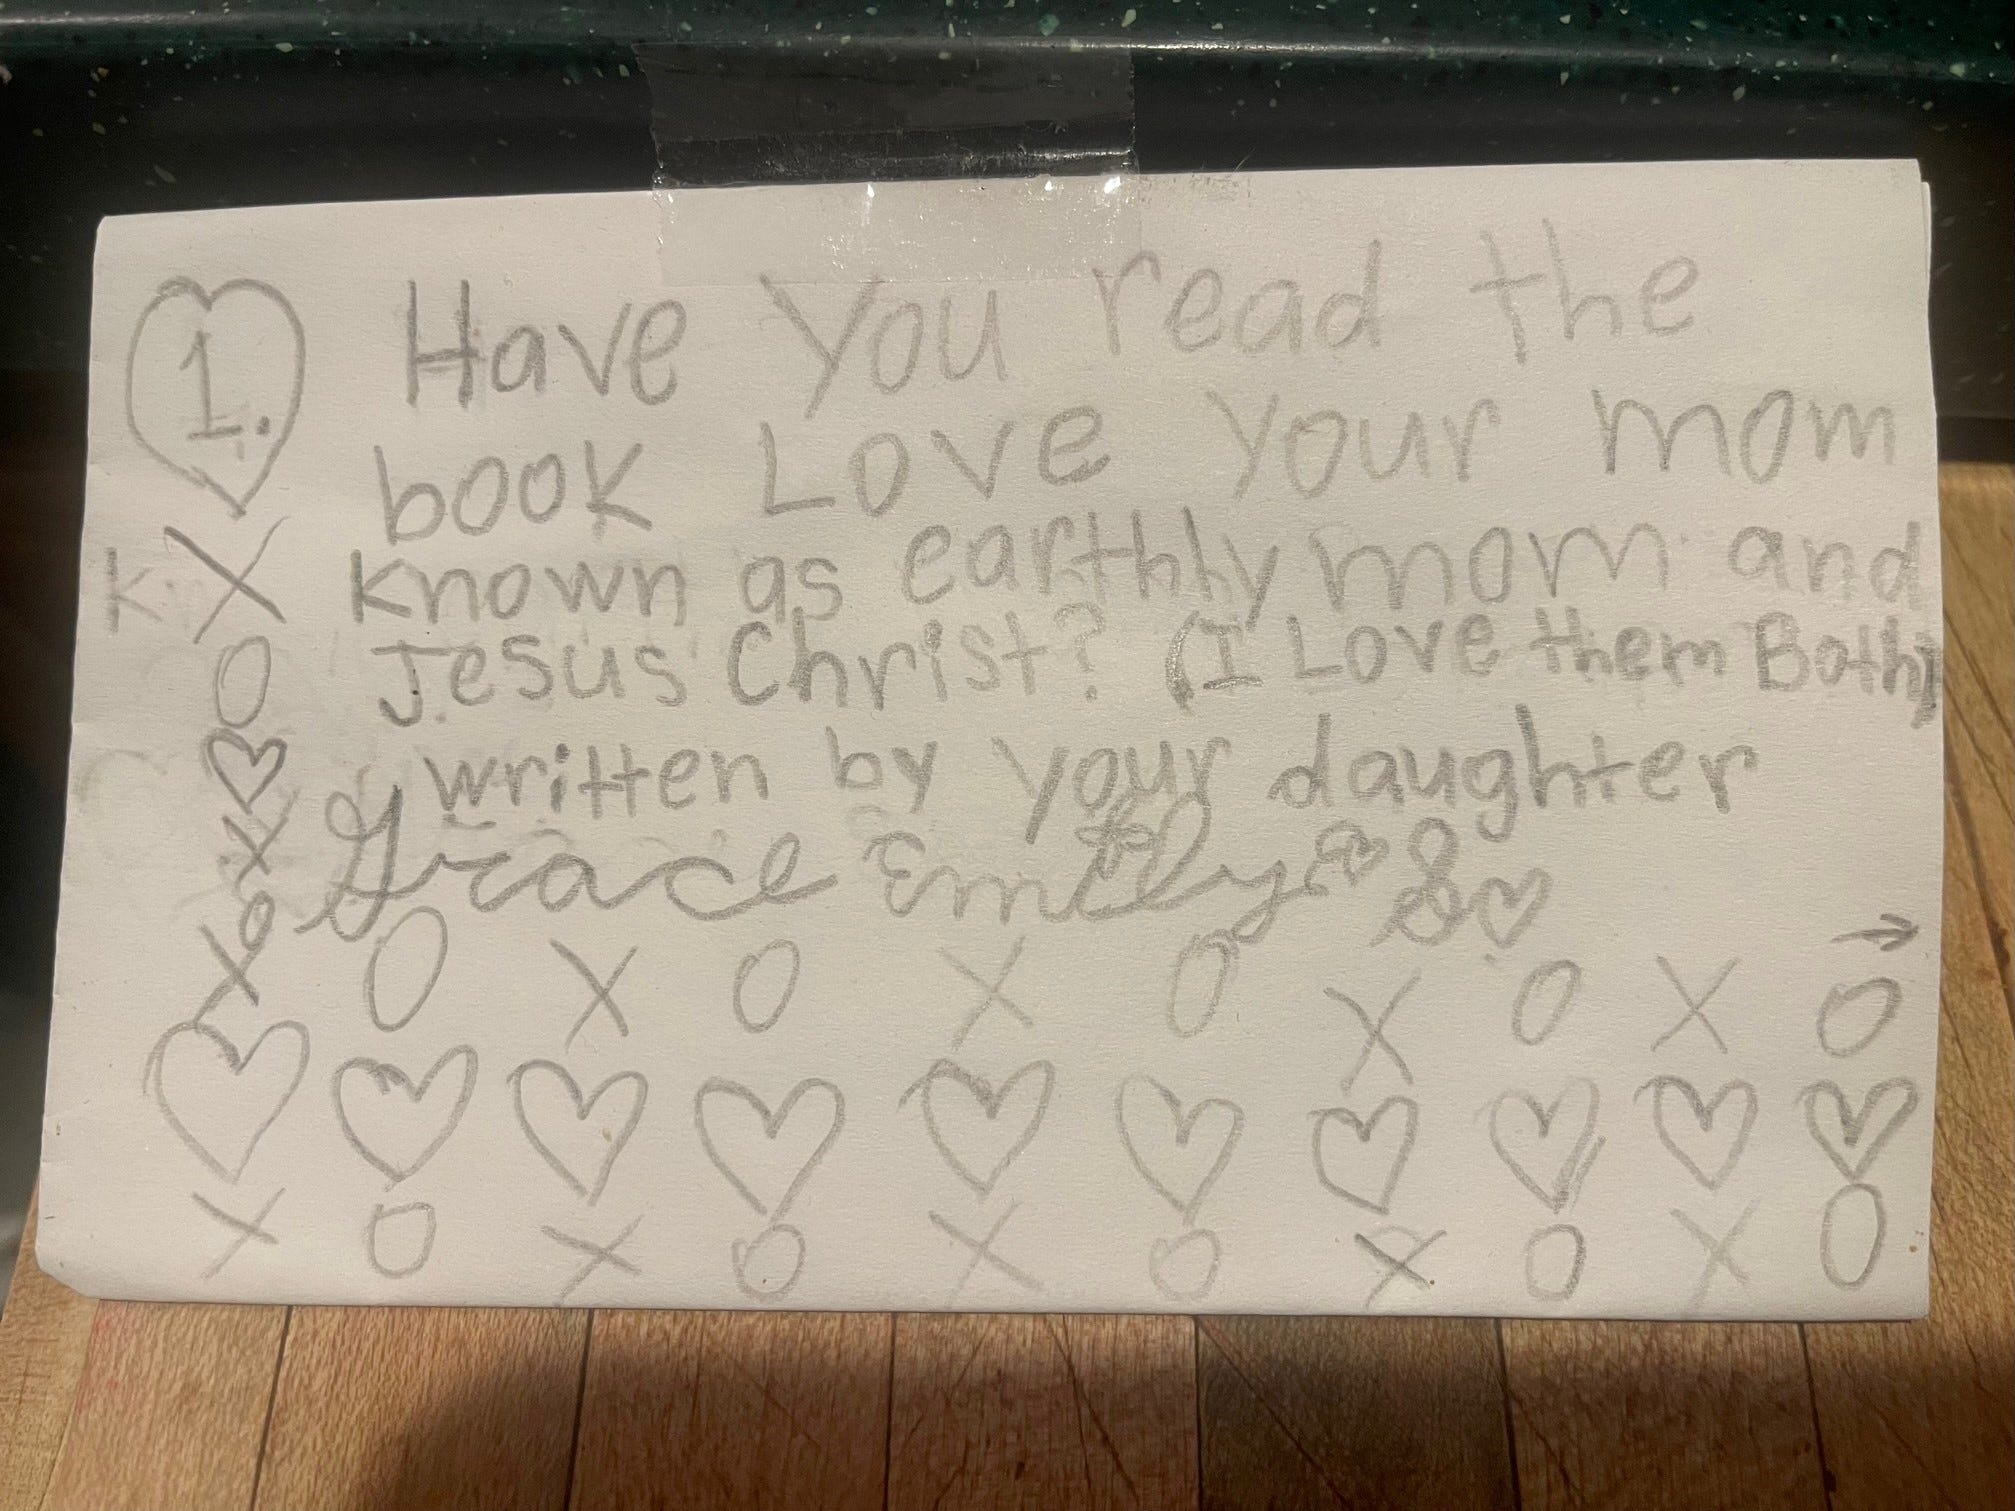 1. Have you read the
book Love your mom
known as earthly mom and
Jesus Christ? (I Love them Both)
written by your daughter
Grace Emily
X O X O X O X O X O
X O X O X O X O X O